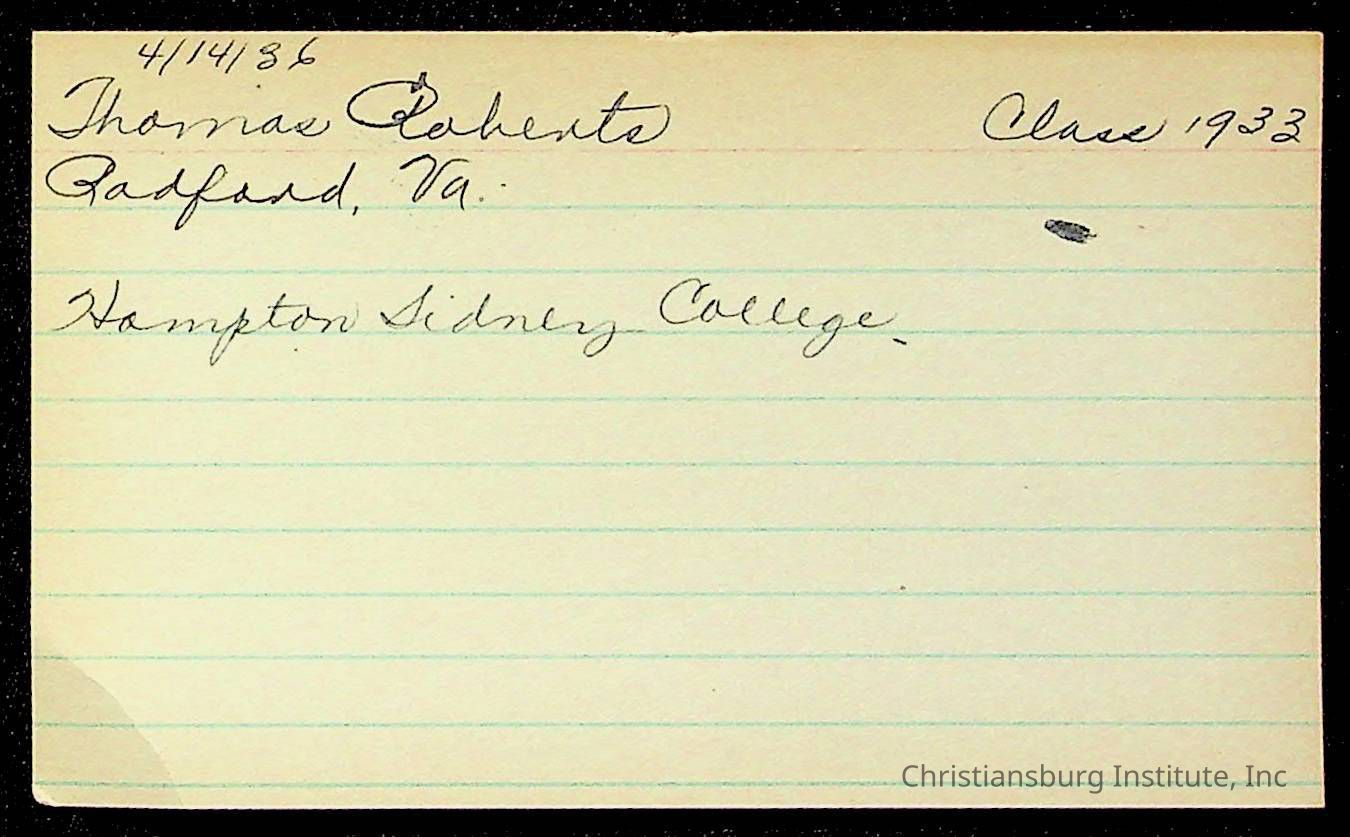 4/14/36
Thomas Roberts Class 1933
Radford, Va.
Hampton Sidney College.
Christiansburg Institute, Inc